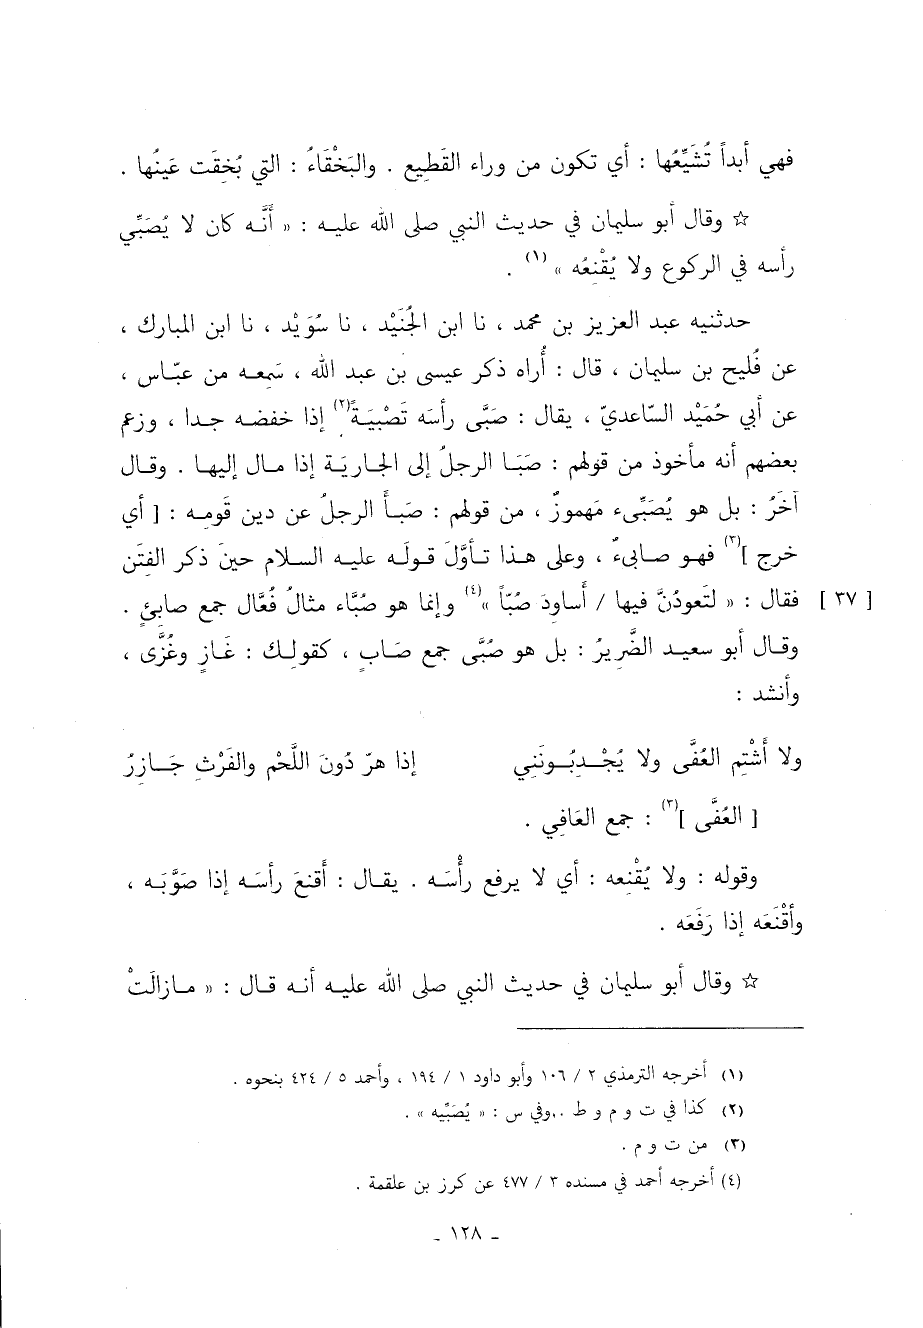 فهي أبداً تُشَيِّعُها : أي تكون من وراء القَطِيع . والبَخْقَاءُ : التي بُخِقَت عَينُها .
☆ وقال أبو سليمان في حديث النبي صلى الله عليه : « أَنَّه كان لا يُصَبِّي
رأسه في الركوع ولا يُقْنِعُه » (١) .
حدثنيه عبد العزيز بن محمد ، نا ابن الجُنَيْد ، نا سُوَيْد ، نا ابن المبارك ،
عن فُليح بن سليمان ، قال : أُراه ذكر عيسى بن عبد الله ، سَمِعه من عبّاس ،
عن أبي حُمَيْد السّاعديّ ، يقال : صَبَّى رأسَه تَصْبِيَةً(٢) إذا خفضه جدا ، وزعم
بعضهم أنه مأخوذ من قولهم : صَبَا الرجلُ إلى الجارية إذا مال إليها . وقال
آخَرُ : بل هو يُصَبِّىء مَهموزٌ ، من قولهم : صَبَأَ الرجلُ عن دين قَومِه : [ أي
خرج ](٣) فهو صابىءٌ ، وعلى هذا تأوَّلَ قولَه عليه السلام حينَ ذكر الفِتَن
[ ٣٧ ] فقال : « لتَعودُنَّ فيها / أساودَ صُبّاً »(٤) وإنما هو صُبَّاء مثالُ فُعَّال جمع صابئٍ .
وقال أبو سعيد الضَّريرُ : بل هو صُبَّى جمع صَابٍ ، كقولك : غَازٍ وغُزَّى ،
وأنشد :
ولا أَشْتِم العُفَّى ولا يُجْدِبُونَنِي إذا هرّ دُونَ اللَّحْم والفَرْثِ جَازِرُ
[ العُفَّى ](٣) : جمع العَافِي .
وقوله : ولا يُقْنِعه : أي لا يرفع رأْسَه . يقال : أَقنعَ رأسَه إذا صَوَّبَه ،
وأَقْنَعَه إذا رَفَعَه .
☆ وقال أبو سليمان في حديث النبي صلى الله عليه أنه قال : « مازالَتْ
(١) أخرجه الترمذي ٢ / ١٠٦ وأبو داود ١ / ١٩٤ ، وأحمد ٥ / ٤٢٤ بنحوه .
(٢) كذا في ت و م و ط ..وفي س : « يُصَبِّيه » .
(٣) من ت و م .
(٤) أخرجه أحمد في مسنده ٣ / ٤٧٧ عن كرز بن علقمة .
- ١٢٨ -